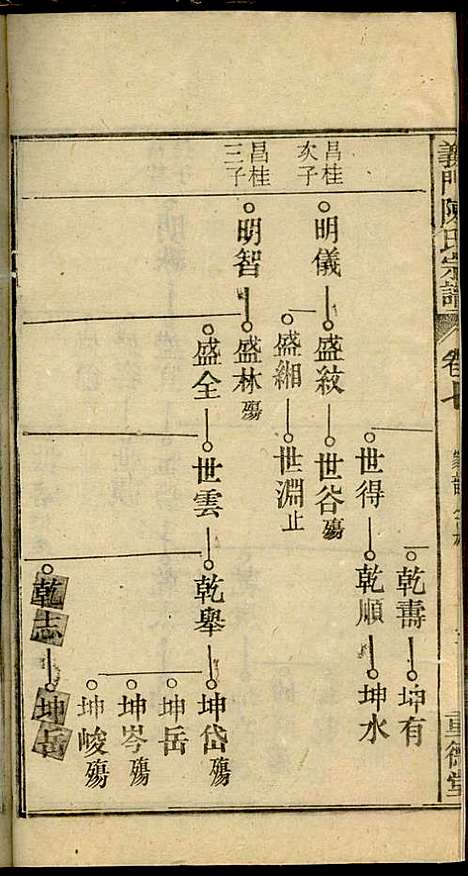 義門陳氏宗譜
卷
德堂
乾壽 坤有
世得 乾順 坤水
昌桂
次子
明儀 盛紋 世谷 殤
盛緗 世淵 止
昌桂
三子
明智 盛林 殤
盛全 世雲 乾舉 坤岱 殤
坤岳
坤岑 殤
坤峻 殤
乾志 坤岳